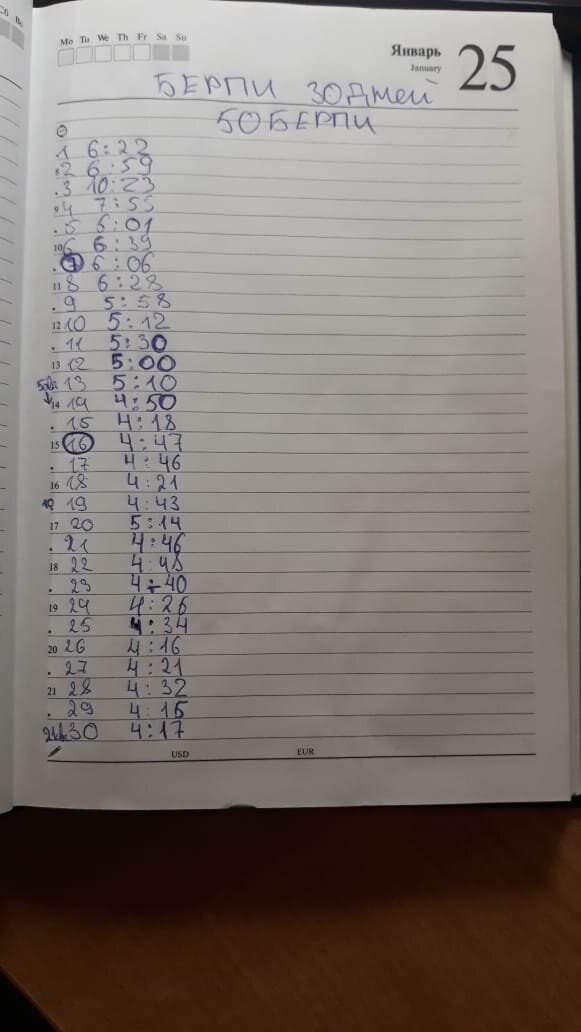 Сб Вс
Mo Tu We Th Fr Sa Su
Январь 25
January
БЕРПИ 30 Дней
50 БЕРПИ
. 1 6:22
8 2 6:59
. 3 10:23
9 4 7:55
. 5 6:01
10 6 6:39
. 7 6:06
11 8 6:28
. 9 5:58
12 10 5:12
. 11 5:30
13 12 5:00
13 5:10
14 14 4:50
. 15 4:18
15 16 4:47
. 17 4:46
16 18 4:21
19 4:43
17 20 5:14
. 21 4:46
18 22 4:48
. 23 4:40
19 24 4:26
. 25 4:34
20 26 4:16
. 27 4:21
21 28 4:32
. 29 4:15
30 4:17
USD EUR